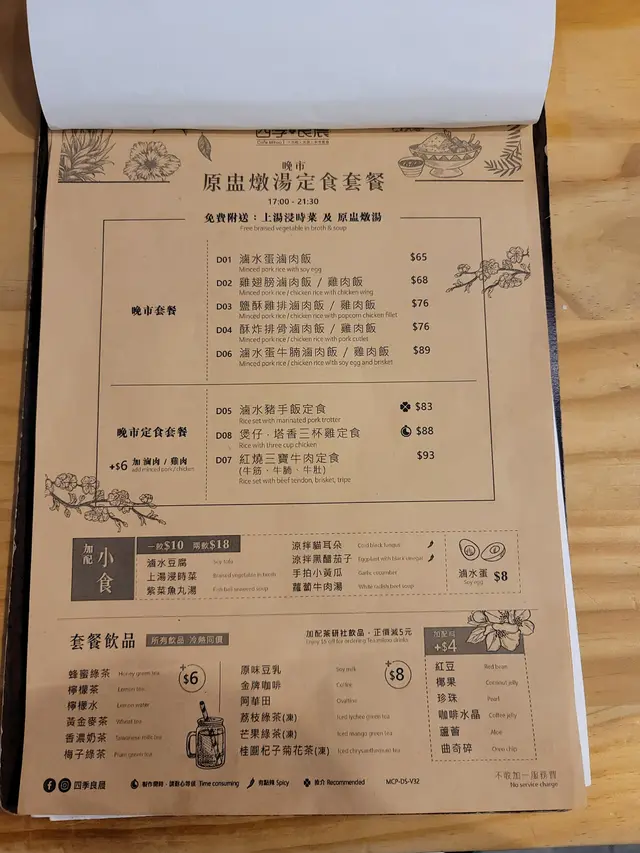 四季●良晨
晚市
原盅燉湯定食套餐
17:00 - 21:30
免費附送：上湯浸時菜 及 原盅燉湯
Free braised vegetable in broth & soup
晚市套餐
D01 滷水蛋滷肉飯 $65
Minced pork rice with soy egg
D02 雞翅膀滷肉飯 / 雞肉飯 $68
Minced pork rice / chicken rice with chicken wing
D03 鹽酥雞排滷肉飯 / 雞肉飯 $76
Minced pork rice / chicken rice with popcorn chicken fillet
D04 酥炸排骨滷肉飯 / 雞肉飯 $76
Minced pork rice / chicken rice with pork cutlet
D06 滷水蛋牛腩滷肉飯 / 雞肉飯 $89
Minced pork rice / chicken rice with soy egg and brisket
晚市定食套餐
+$6 加 滷肉 / 雞肉
add minced pork / chicken
D05 滷水豬手飯定食 $83
Rice set with marinated pork trotter
D08 煲仔 · 塔香三杯雞定食 $88
Rice with three cup chicken
D07 紅燒三寶牛肉定食 $93
(牛筋 · 牛腩 · 牛肚)
Rice set with beef tendon, brisket, tripe
加配 小食
一款$10 兩款$18
滷水豆腐 Soy tofu
上湯浸時菜 Braised vegetables in broth
紫菜魚丸湯
涼拌貓耳朵 Cold black fungus
涼拌黑醋茄子 Eggplant with black vinegar
手拍小黃瓜 Garlic cucumber
蘿蔔牛肉湯 White radish beef soup
滷水蛋 $8
Soy egg
套餐飲品 所有飲品 冷熱同價
加配茶研社飲品 · 正價減5元
蜂蜜綠茶 Honey green tea
檸檬茶 Lemon tea
檸檬水 Lemon water
黃金麥茶 Wheat tea
香濃奶茶 Taiwanese milk tea
梅子綠茶 Plum green tea
+$6
原味豆乳 Soy milk
金牌咖啡 Coffee
阿華田 Ovaltine
荔枝綠茶(凍) Iced lychee green tea
芒果綠茶(凍) Iced mango green tea
桂圓杞子菊花茶(凍) Iced chrysanthemum tea
+$8
加配料
+$4
紅豆 Red bean
椰果 Coconut jelly
珍珠 Pearl
咖啡水晶 Coffee jelly
蘆薈 Aloe
曲奇碎 Oreo chip
四季良晨
製作需時 · 請耐心等候 Time consuming
有點辣 Spicy
推介 Recommended
MCP-DS-V32
不收加一服務費
No service charge